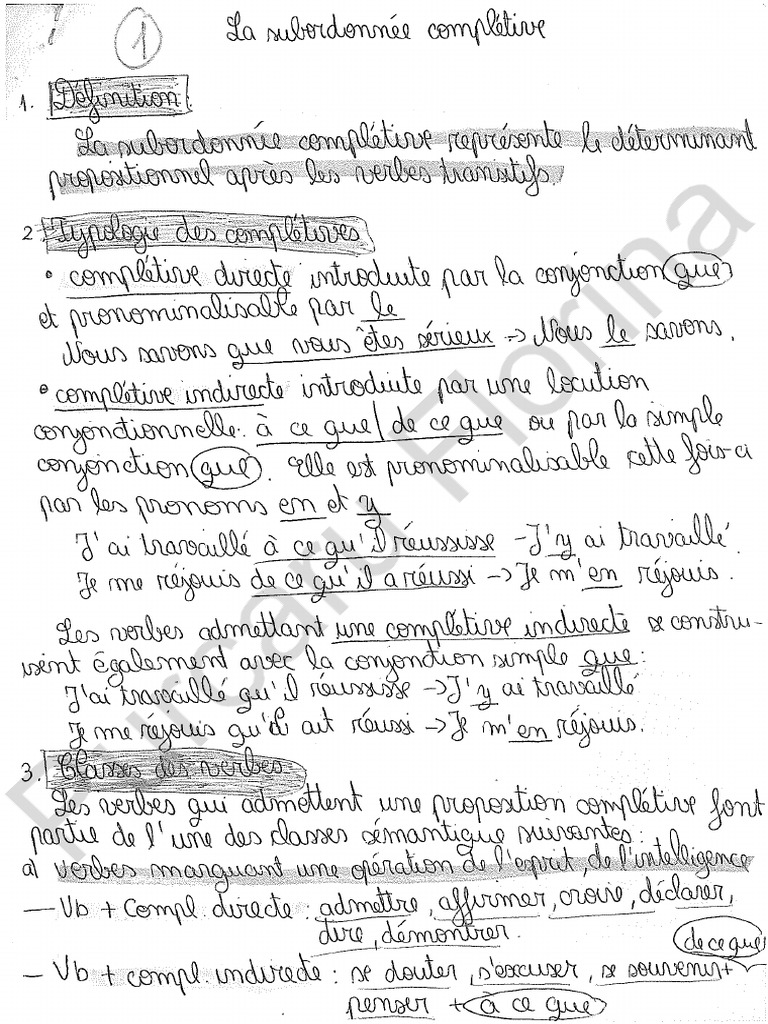 1
La subordonnée complétive
1. Définition
La subordonnée complétive représente le déterminant
propositionnel après les verbes transitifs.
2 Typologie des complétives
• complétive directe introduite par la conjonction que
et pronominalisable par le
Nous savons que vous êtes sérieux -> Nous le savons.
• complétive indirecte introduite par une locution
conjonctionnelle: à ce que/ de ce que ou par la simple
conjonction que. Elle est pronominalisable cette fois-ci
par les pronoms en et y
J'ai travaillé à ce qu'il réussisse - J'y ai travaillé.
Je me réjouis de ce qu'il a réussi -> Je m'en réjouis.
Les verbes admettant une complétive indirecte se constru-
isent également avec la conjonction simple que:
J'ai travaillé qu'il réussisse -> J'y ai travaillé
Je me réjouis qu'il ait réussi -> Je m'en réjouis.
3. Classes des verbes
Les verbes qui admettent une proposition complétive font
partie de l'une des classes sémantique suivantes:
a) verbes marquant une opération de l'esprit, de l'intelligence
— Vb + compl. directe: admettre, affirmer, croire, déclarer,
dire, démontrer.
de ce que
— Vb + compl. indirecte: se douter, s'excuser, se souvenir +
penser + à ce que
Purcaru Florina